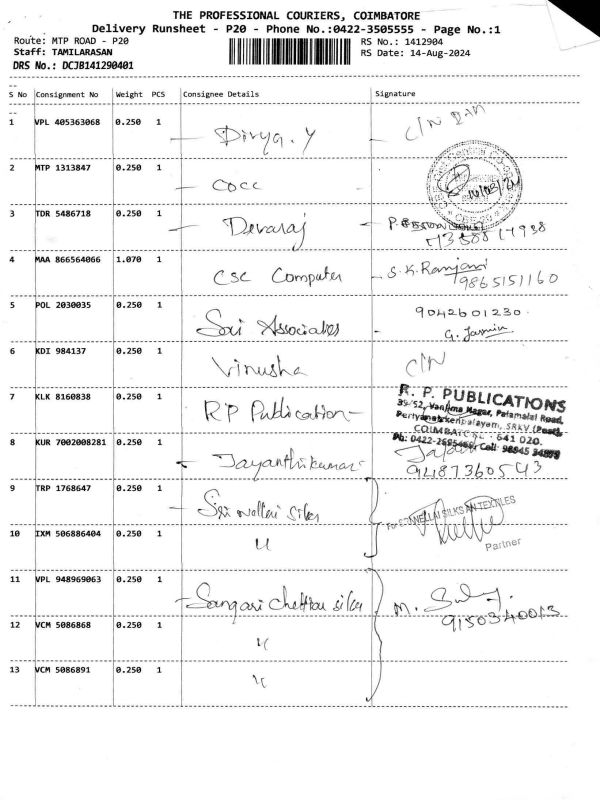 THE PROFESSIONAL COURIERS, COIMBATORE
Delivery Runsheet - P20 - Phone No.:0422-3505555 - Page No.:1
Route: MTP ROAD - P20 RS No.: 1412904
Staff: TAMILARASAN RS Date: 14-Aug-2024
DRS No.: DCJB141290401
S No Consignment No Weight PCS Consignee Details Signature
1 VPL 405363068 0.250 1 Divya. Y C/N
2 MTP 1313847 0.250 1 COCC
3 TDR 5486718 0.250 1 Devaraj
4 MAA 866564066 1.070 1 CSC Computer S.K. Ranjani
9865151160
5 POL 2030035 0.250 1 Sai Associates 9042601230
G. Jasmin
6 KDI 984137 0.250 1 Vinusha C/N
7 KLK 8160838 0.250 1 RP Publication R. P. PUBLICATIONS
39/52, Vanjima Nagar, Palamalai Road,
Periyanaickenpalayam, SRKV (Post),
COIMBATORE - 641 020.
8 KUR 7002008281 0.250 1 Jayanthikumar
9487360543
9 TRP 1768647 0.250 1 Sri nellai silks
10 IXM 506886404 0.250 1 "
Partner
11 VPL 948969063 0.250 1 Sangari chettiar silks M.
9150340013
12 VCM 5086868 0.250 1 "
13 VCM 5086891 0.250 1 "